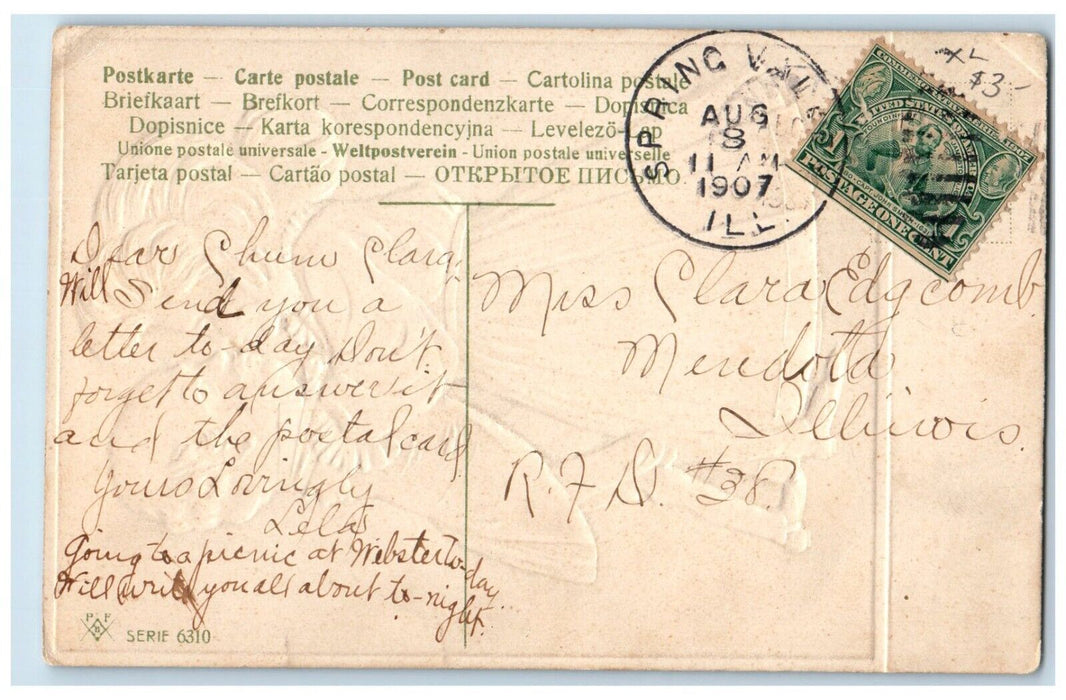 Postkarte — Carte postale — Post card — Cartolina postale
Briefkaart — Brefkort — Correspondenzkarte — Dopisnica
Dopisnice — Karta korespondencyjna — Levelező-Lap
Unione postale universale - Weltpostverein - Union postale universelle
Tarjeta postal — Cartão postal — ОТКРЫТОЕ ПИСЬМО.
SPRING VALLEY
AUG
8
11 AM
1907
ILL.
XL
$3-
UNITED STATES OF AMERICA
1907
POSTAGE ONE CENT
Dear Chum Clara,
Will Send you a
letter to-day Don't
forget to answer it
and the postal card
Yours Lovingly
Lela
Going to a picnic at Webster to-day
Will write you all about to-night.
Miss Clara Edgcomb
Mendota
Illinois.
R.F.D. #38.
P F
B
SERIE 6310